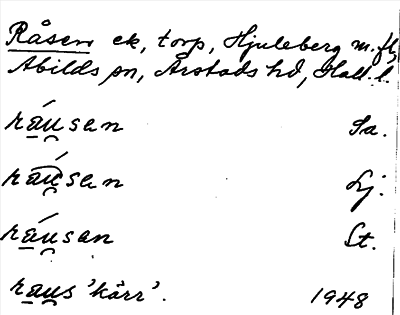 Råsen ek, torp, Hjuleberg m.fl.,
Abilds sn, Årstads hd, Hall. l.
ráu̯san Sa.
ráu̯san Lj.
ráu̯san St.
rau̯s 'kärr'. 1948